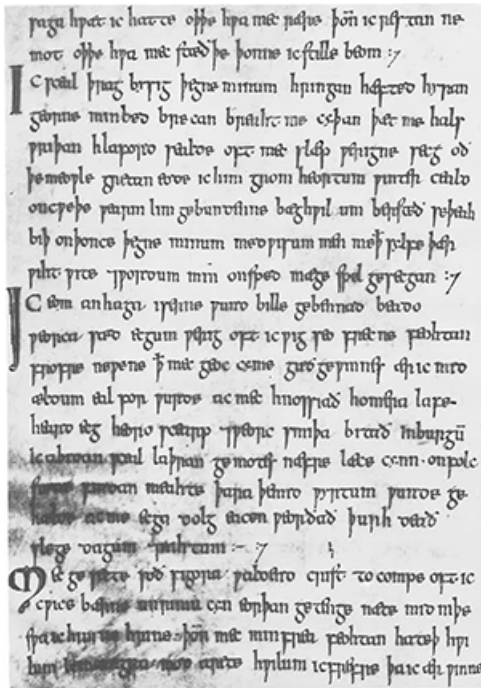 saga hƿæt ic hatte oþþe hƿa mec rære þoñ ic restan ne
mot oþþe hƿa mec stæðþe þonne ic stille beom :7
Ic sceal þrag bysig þegne minum hringum hæfted hyran
georne min bed brecan breahtme cyþan þæt me hals
ƿriþan hlaford sealde oft mec slæp ƿerigne secg oð
þe meoƿle gretan eode ic him grom heortum ƿinter ceald
oncƿeþe ƿearm lim gebundenne bæg hƿilum bersteð seþeah
biþ onþonce þegne minum medƿisum men me ꝥ sylfe þær
ƿiht ƿite ⁊ƿordum min onsped mæge spel gesecgan :7
Ic eom anhaga iserne ƿund bille gebennad beado
ƿeorca sæd ecgum ƿerig oft ic ƿig seo frecne feohtan
frofre neƿene ꝥ mec geoc cyme guð geƿinnes ær ic mid
ældum eal for ƿurde ac mec hnossiað homera lafe
heard ecg heoro scearp ⁊ƿeorc smiþa bitað inburgū
ic abidan sceal laþran gemotes næfre læce cynn onfolc
stede findan meahte þara þe mid ƿyrtum ƿunde ge
hælde ac me ecga dolg eacen ƿeorðað þurh deað
slege dagum ⁊ nihtum :- 7
Mec gesette soð sigora ƿaldend crist to compe oft ic
cƿice bærne unrimu cyn eorþan getenge næte mid niþe
sƿa ic him no hrine þoñ mec min frea feohtan hateþ hƿi
lum ic monigra mod arete hƿilum ic frefre þa ic ær ƿinne